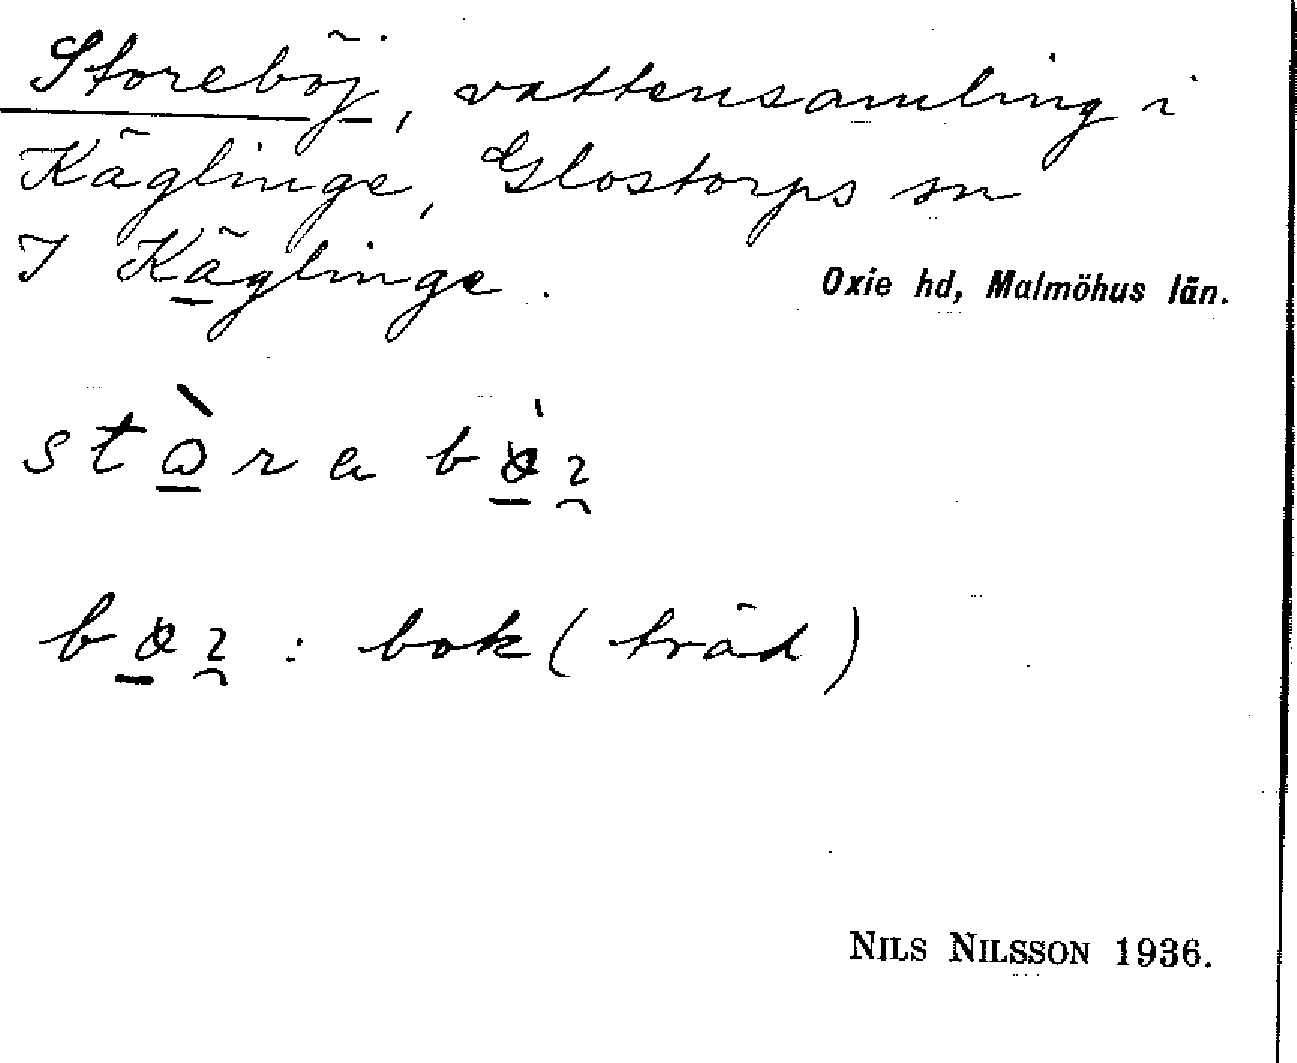 Storeböj, vattensamling i
Käglinge, Glostorps sn
I Käglinge.
Oxie hd, Malmöhus län.
: bok (träd)
NILS NILSSON 1936.